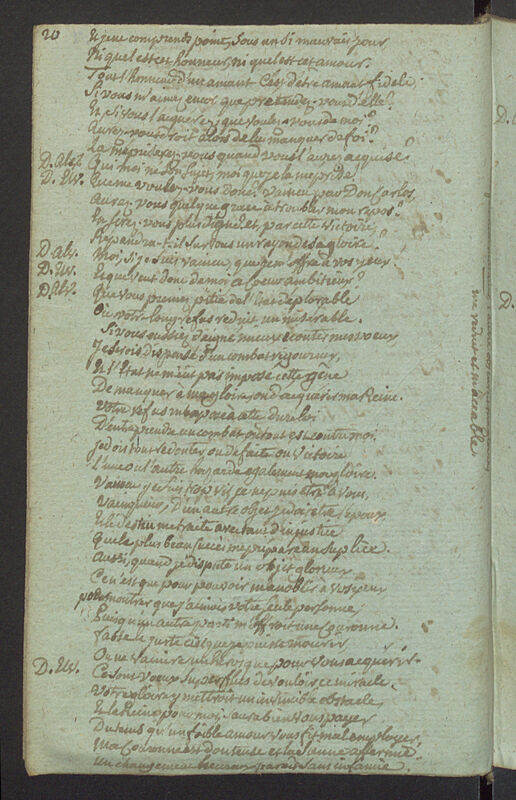 20 Et je ne comprends point, sous un si mauvais jour
Ni quel est cet honneur, ni quel est cet amour.
Tout l'honneur d'un amant c'est d'être amant fidele
Si vous m'aimez encor que pretendez-vous d'elle?
Et si vous l'acquerez, que voulez-vous de moi?
Aurez-vous droit alors de lui manquer de foi?
La mepriserez-vous quand vous l'aurez acquise
D. Alv. Qui moi né son sujet, moi que je la meprise!
D. Elv. Que me voulez-vous donc? vaincu par Don Carlos,
Aurez-vous quelque grace à troubler mon repos?
En serez-vous plus digne, et par cette victoire,
Repandra-t-il sur vous un rayon de sa gloire?
D. Alv. Moi, si je suis vaincu, que j'en offre à vos yeux
D. Elv. Et que veut donc de moi ce coeur ambitieux?
D. Alv. Que vous preniez pitié de l'etat deplorable
Où votre long refus reduit un miserable.
Si vous eussiez daigné mieux ecouter mes voeux
Je serois dispensé d'un combat rigoureux,
Et l'Etat ne m'eut pas imposé cette gêne
De manquer à ma gloire, ou d'acquerir ma Reine.
Votre refus m'expose à cette dure loi
D'entreprendre un combat où tout est contre moi.
Je dois tout redouter, ou defaite ou victoire
L'une ou l'autre hazarde egalement ma gloire.
Vaincu, je suis trop vil, je ne puis être à vous,
Vainqueur, d'un autre objet je dois être l'epoux
Et le destin me traite avec tant d'injustice
Que le plus beau succès me prépare un suplice.
Aussi, quand je dispute un objet glorieux
Ce n'est que pour pouvoir m'anoblir à vos yeux
pour montrer que j'aimois votre seule personne,
Lorsqu'un autre parti m'offroit une Couronne.
Fasse le juste ciel que je puisse mourir,
Ou ne vaincre un heros que pour vous acquerir.
D. Elv. Ce sont voeux superflus de vouloir ce miracle.
Votre gloire y mettroit un invincible obstacle,
Et la Reine pour moi saura bien vous payer
Du tems qu'un foible amour vous fit mal employer,
Ma Couronne est douteuse et la sienne affermie.
Un changement heureux paroit sans infamie.